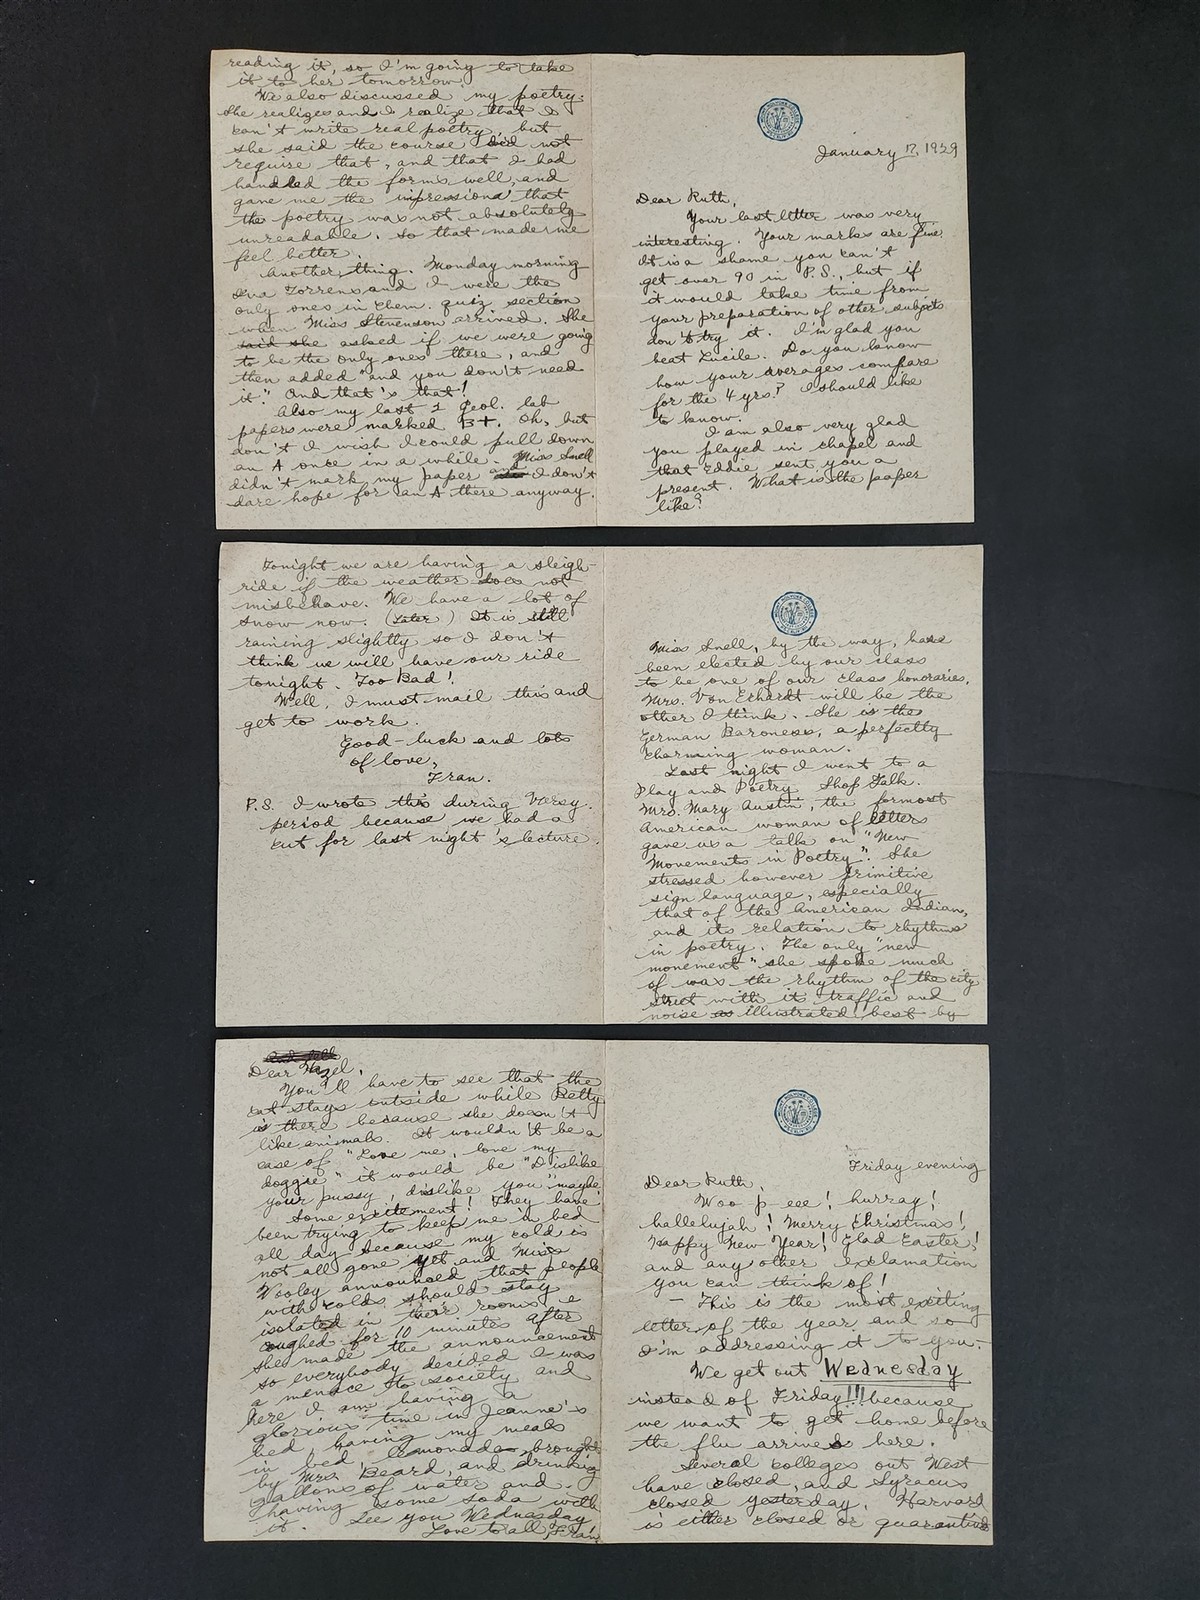 reading it, so I'm going to take
it to her tomorrow.
We also discussed my poetry.
She realizes and I realize that I
can't write real poetry, but
she said the course did not
require that, and that I had
handled the forms well, and
gave me the impression that
the poetry was not absolutely
unreadable. So that made me
feel better.
Another thing. Monday morning
Eva Torrens and I were the
only ones in Chem. quiz section
when Miss Stevenson arrived. She
said she asked if we were going
to be the only ones there, and
then added "and you don't need
it." And that's that!
Also my last 2 Geol. lab
papers were marked B+. Oh, but
don't I wish I could pull down
an A once in a while. Miss Snell
didn't mark my paper and I don't
dare hope for an A there anyway.
January 17, 1929
Dear Ruth,
Your last letter was very
interesting. Your marks are fine.
It is a shame you can't
get over 90 in P.S., but if
it would take time from
your preparation of other subjects
don't try it. I'm glad you
beat Lucile. Do you know
how your averages compare
for the 4 yrs.? I should like
to know.
I am also very glad
you played in chapel and
that Eddie sent you a
present. What is the paper
like?
Tonight we are having a sleigh-
ride if the weather does not
misbehave. We have a lot of
snow now. (Later) It is still
raining slightly so I don't
think we will have our ride
tonight. Too Bad!
Well, I must mail this and
get to work.
Good-luck and lots
of love,
Fran.
P.S. I wrote this during Versy.
period because we had a
cut for last night's lecture.
Miss Snell, by the way, has
been elected by our class
to be one of our class honoraries.
Mrs. Von Eckardt will be the
other I think. She is the
German Baroness, a perfectly
charming woman.
Last night I went to a
Play and Poetry Shop Talk.
Mrs. Mary Austin, the formost
American woman of letters
gave us a talk on "New
Movements in Poetry". She
stressed however primitive
sign language, especially
that of the American Indian,
and its relation to rhythms
in poetry. The only "new
movement" she spoke much
of was the rhythm of the city
street with its traffic and
noise as illustrated best by
Dear Hazel,
You'll have to see that the
cat stays outside while Betty
is there because she doesn't
like animals. It wouldn't be a
case of "Love me, love my
doggie" it would be "Dislike
your pussy, dislike you" maybe
Some excitement! They have
been trying to keep me in bed
all day because my cold is
not all gone yet and Miss
Wooley announced that people
with colds should stay
isolated in their rooms
coughed for 10 minutes after
she made the announcement
so everybody decided I was
a menace to society and
here I am having a
glorious time in Jeanne's
bed having my meals
in bed, lemonade brought
by Mrs. Beard, and drinking
gallons of water and
having some soda with
it. See you Wednesday
Love to all, Fran
Friday evening
Dear Ruth,
Woo p eee! hurray!
hallelujah! Merry Christmas!
Happy New Year! Glad Easter!
and any other exclamation
you can think of!
- This is the most exciting
letter of the year and so
I'm addressing it to you.-
We get out Wednesday
instead of Friday!!! because
we want to get home before
the flu arrives here.
Several colleges out West
have closed, and Syracus
closed yesterday. Harvard
is either closed or quarantined